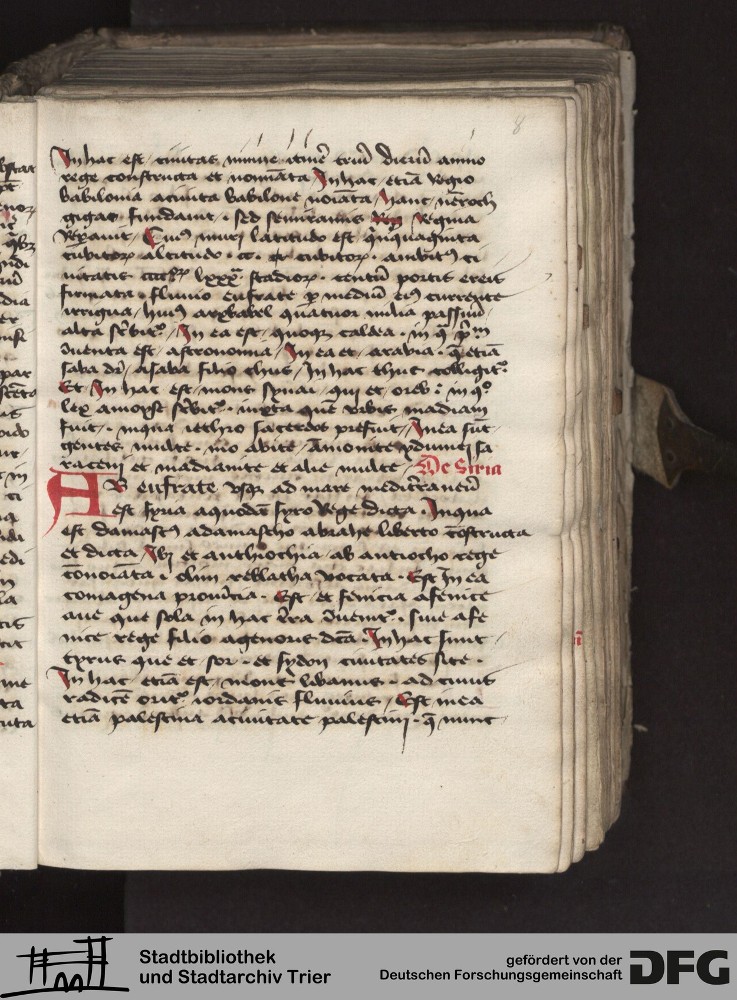 8
In hac est ciuitas niniue itinē triū dierū a nino
rege constructa et noīata In hac etiā regio
babilonia a ciuita babilone noīata hanc nēroth
gigas fundauit sed semiramis regina
Cuius muri latitudo est quinquaginta
cubitorꝫ altitudo cc cubitorꝫ ambitus ci
uitatis lxxx stadiorꝫ centū portis ereis
firmata fluuio eufrate ꝑ mediū eiꝰ currente
irrigua huius quatuor milia passuū
alta In ea est quoqꝫ caldea in qua
inuenta est astronomia In ea et arabia q̄ etiā
saba dr̄ a saba filio chus In hac thus colligit᷑
Et In hac est mons synai qui et oreb in q°
lex a moyse iuxta quē vrbis madian
fuit in qua iethro sacerdos prefuit In ea sūt
gentes multe moabite amonite ydumei sa
raceni et madianite et alie multe De Siria
AB eufrate vsqꝫ ad mare mediterraneū
est syria a quodā syro rege dicta In qua
est damascꝰ a damascho abrahe liberto cōstructa
et dicta Ibi et anthiochia ab antiocho rege
cōnoīata olim reblatha vocata Est In ea
comagena prouīcia Est et fenicia a fenice
aue que sola in hac t̄ra inuenit᷑ siue a fe
nice rege filio agenoris dc̄a In hac sunt
tyrus que et sor et sydon ciuitates site
In hac etiā est mons libanus ad cuius
radicē orit᷑ iordanis fluuius Est in ea
etiā palestina a ciuitate palestini q̄ nunc
Stadtbibliothek
und Stadtarchiv Trier
gefördert von der
Deutschen Forschungsgemeinschaft
DFG